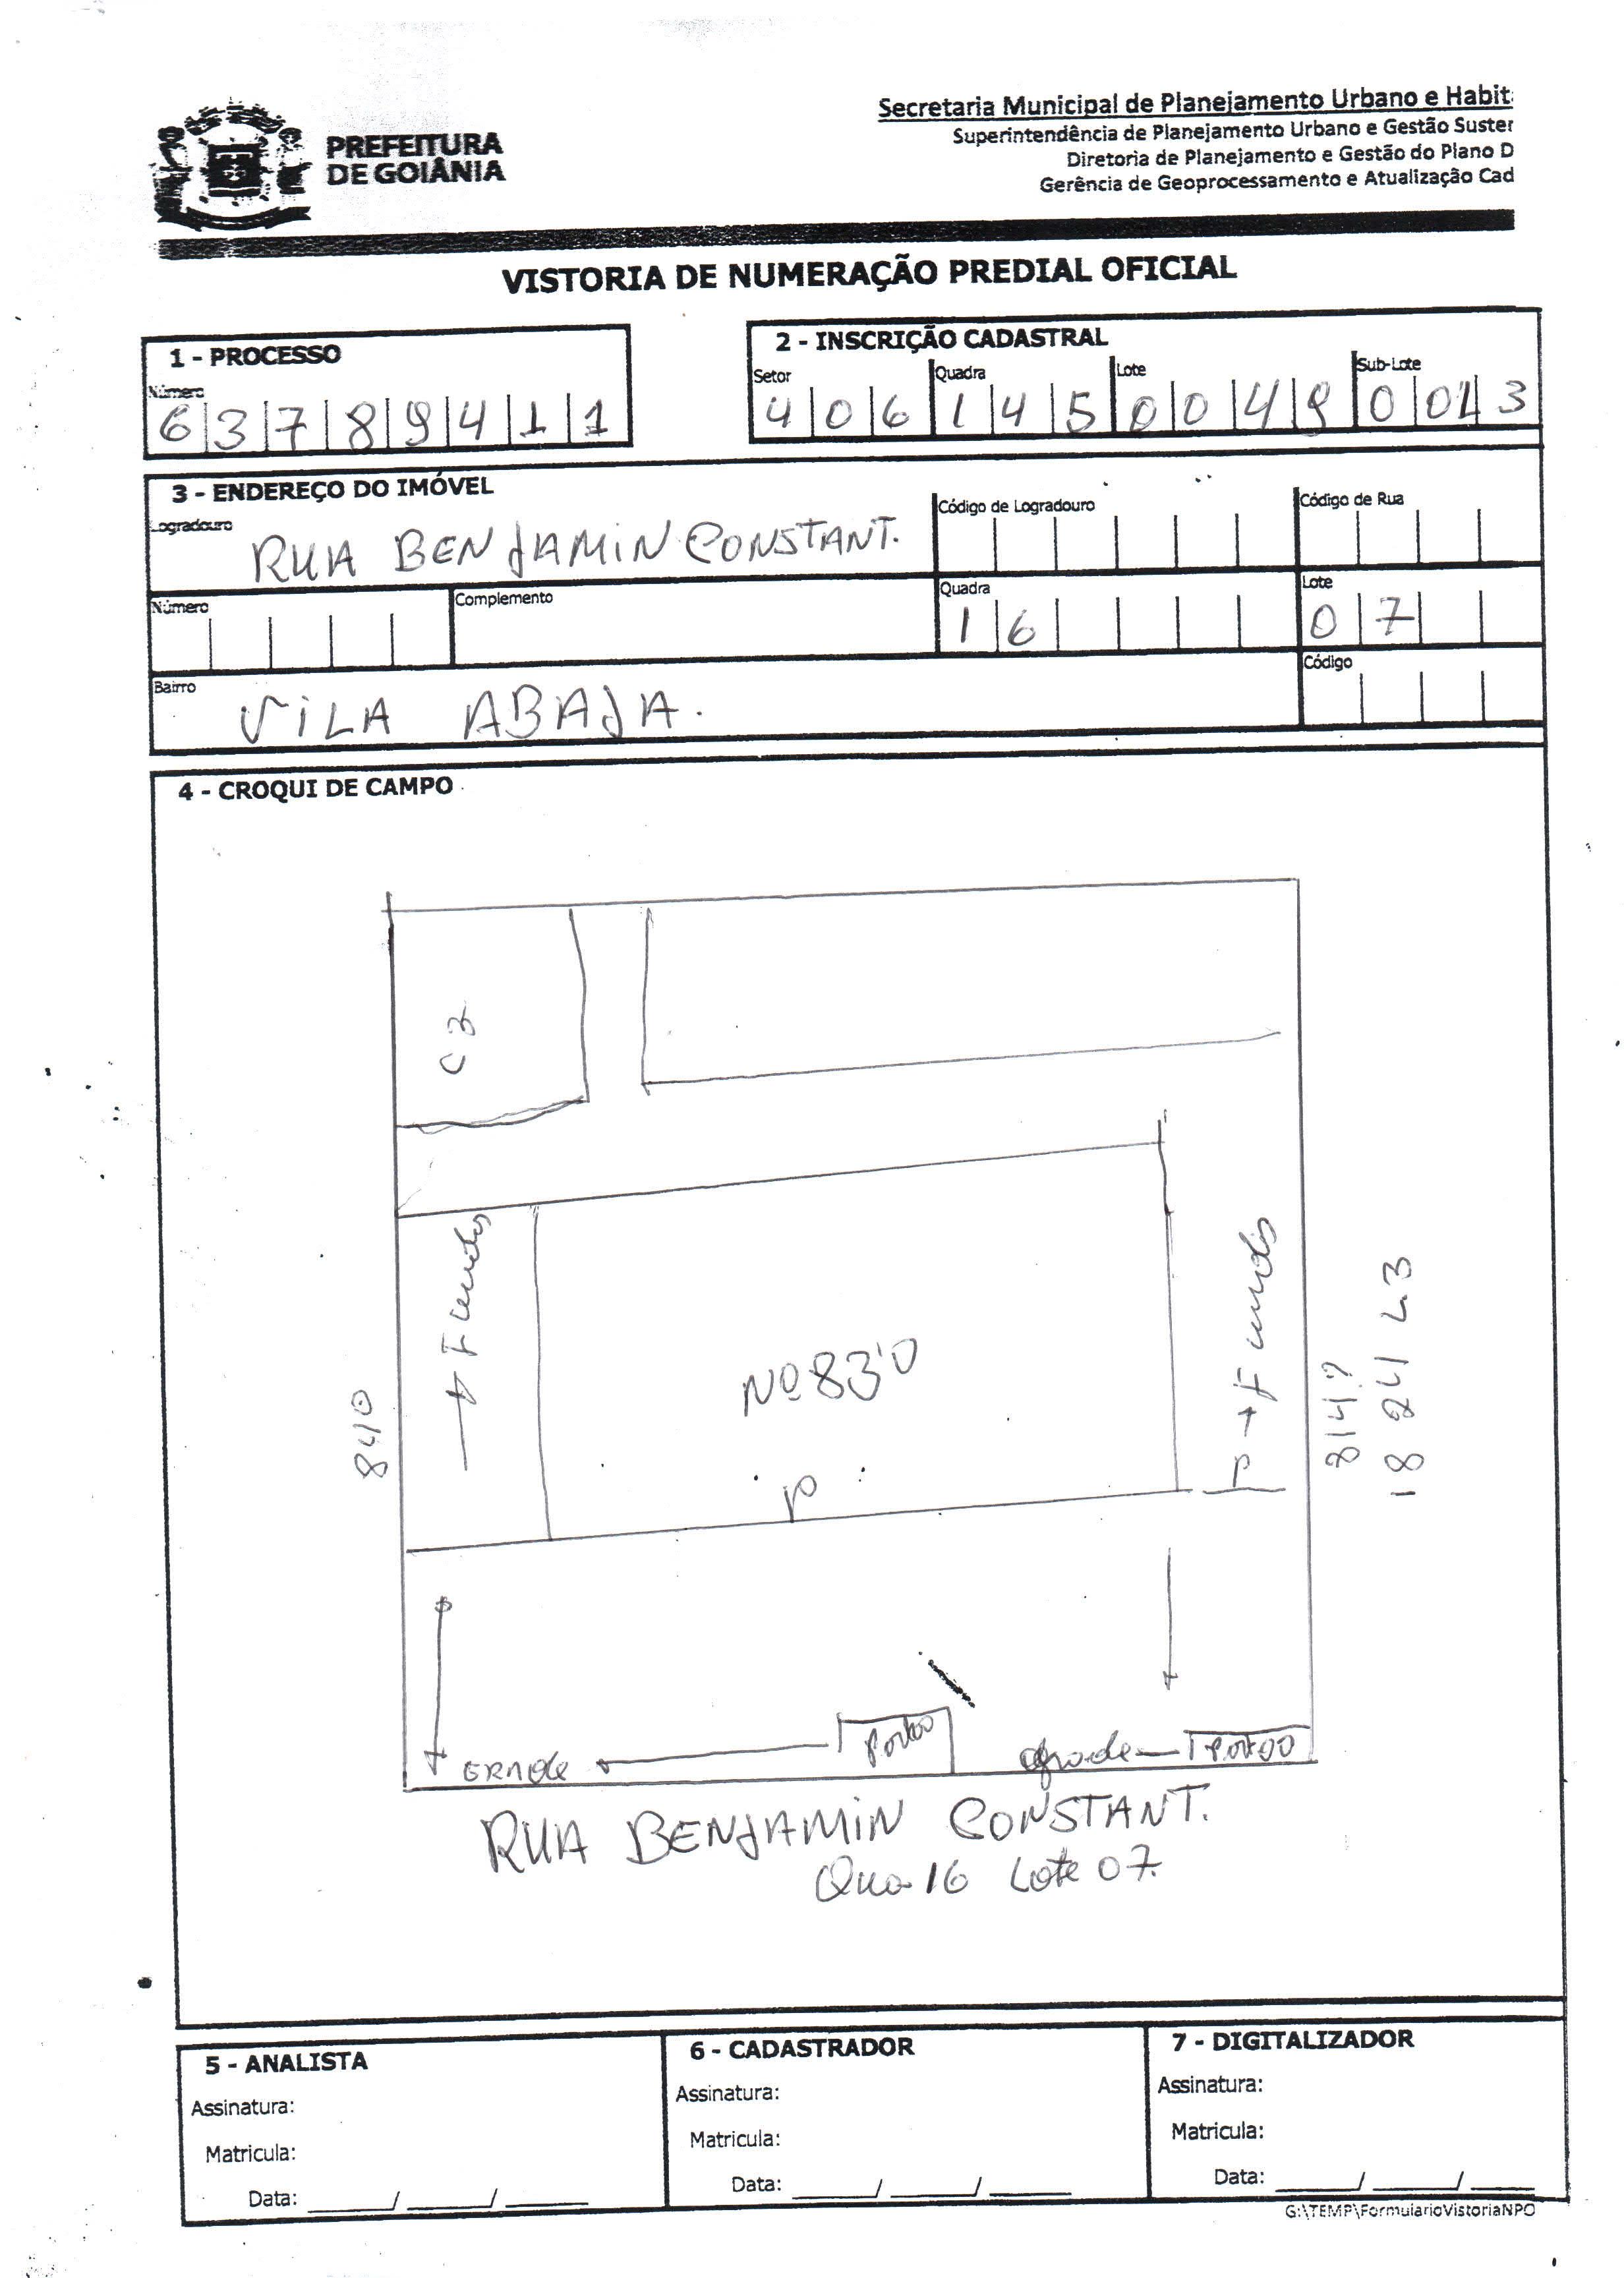 PREFEITURA
DE GOIÂNIA
Secretaria Municipal de Planejamento Urbano e Habit
Superintendência de Planejamento Urbano e Gestão Suster
Diretoria de Planejamento e Gestão do Plano D
Gerência de Geoprocessamento e Atualização Cad
VISTORIA DE NUMERAÇÃO PREDIAL OFICIAL
1 - PROCESSO
Número
6 3 7 8 9 4 1 1
2 - INSCRIÇÃO CADASTRAL
Setor Quadra Lote Sub-Lote
4 0 6 1 4 5 0 0 4 9 0 0 1 3
3 - ENDEREÇO DO IMÓVEL
Logradouro
RUA BENJAMIN CONSTANT.
Código de Logradouro
Código de Rua
Número
Complemento
Quadra
1 6
Lote
0 7
Bairro
VILA ABAJA.
Código
4 - CROQUI DE CAMPO
C 3
Fundos
Nº 830
P
840
P → Fundos
GRADE
Portão
grade
Portão
RUA BENJAMIN CONSTANT.
Qua 16 Lote 07.
5 - ANALISTA
Assinatura:
Matricula:
Data: ____/____/____
6 - CADASTRADOR
Assinatura:
Matricula:
Data: ____/____/____
7 - DIGITALIZADOR
Assinatura:
Matricula:
Data: ____/____/____
G:\TEMP\FormularioVistoriaNPO